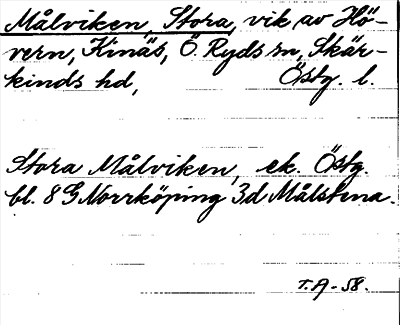 Målviken, Stora, vik av Hö-
vern, Kinäs, Ö. Ryds sn, Skär-
kinds hd, Östg. l.
Stora Målviken, ek. Östg.
bl. 8 G Norrköping 3d Målstena.
T.A-58.